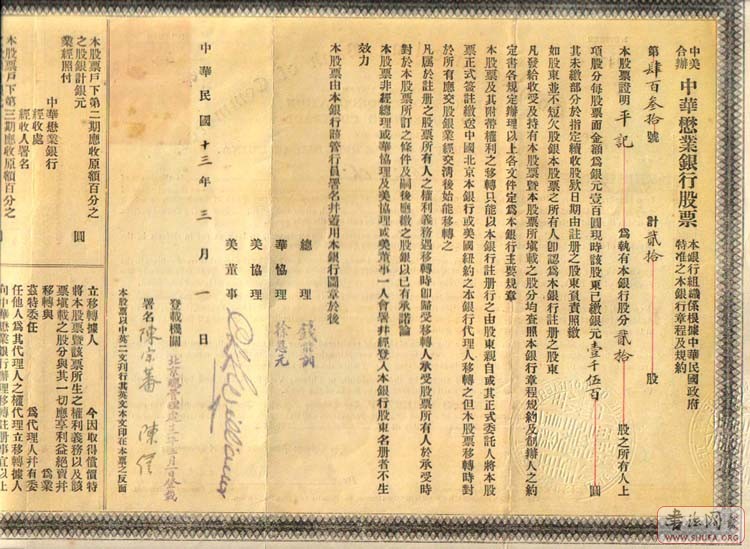 中美
合辦
中華懋業銀行股票
本銀行組織係根據中華民國政府
特准之本銀行章程及規約
第肆百叁拾號
計貳拾股
本股票證明平記為執有本銀行股分貳拾股之所有人上
項股分每股票面金額為銀元壹百圓現時該股東已繳銀元壹千伍百圓
其未繳部分於指定續收股欵日期由註冊之股東負責照繳
如股東並不短欠股銀本股票之所有人即認為本銀行註冊之股東
凡發給收受及持有本股票暨本股票所塡載之股分均查照本銀行章程規約及創辦人之約
定書各規定辦理以上各文件定為本銀行主要規章
本股票及其附帶權利之移轉只能以本銀行註冊行之由股東親自或其正式委託人將本股
票正式簽註繳送中國北京本銀行或美國紐約之本銀行代理人移轉之但本股票移轉時對
於所有應交股銀業經交清後始能移轉之
凡屬於註冊之股票所有人之權利義務遇移轉時卽歸受移轉人承受股票所有人於承受時
對於本股票所訂之條件及嗣後應繳之股銀以已有承諾論
本股票非經總理或華協理及美協理或美董事一人會署并經登入本銀行股東名册者不生
效力
本股票由本銀行該管行員署名并蓋用本銀行圖章於後
總理
華協理 徐恩元
美協理
美董事
中華民國十三年三月一日
登載機關
署名 陳宗蕃
本股票以中英二文列行其英文本文印在本票之反面
本股票戶下第二期應收原額百分之
之股銀計銀元 圓
業經照付
中華懋業銀行
經收處
經收人署名
本股票戶下第三期應收原額百分之
立移轉據人 今因取得價値特
將本股票暨該票所生之權利義務以及該
票塡載之股分與其一切應享利益絕賣并
移轉與 為業
茲特委任 為代理人并有委
任他人為其代理人之權代理立移轉據人
向中華懋業銀行辦理移轉註冊事宜以上
書法网
WWW.SHUFA.ORG